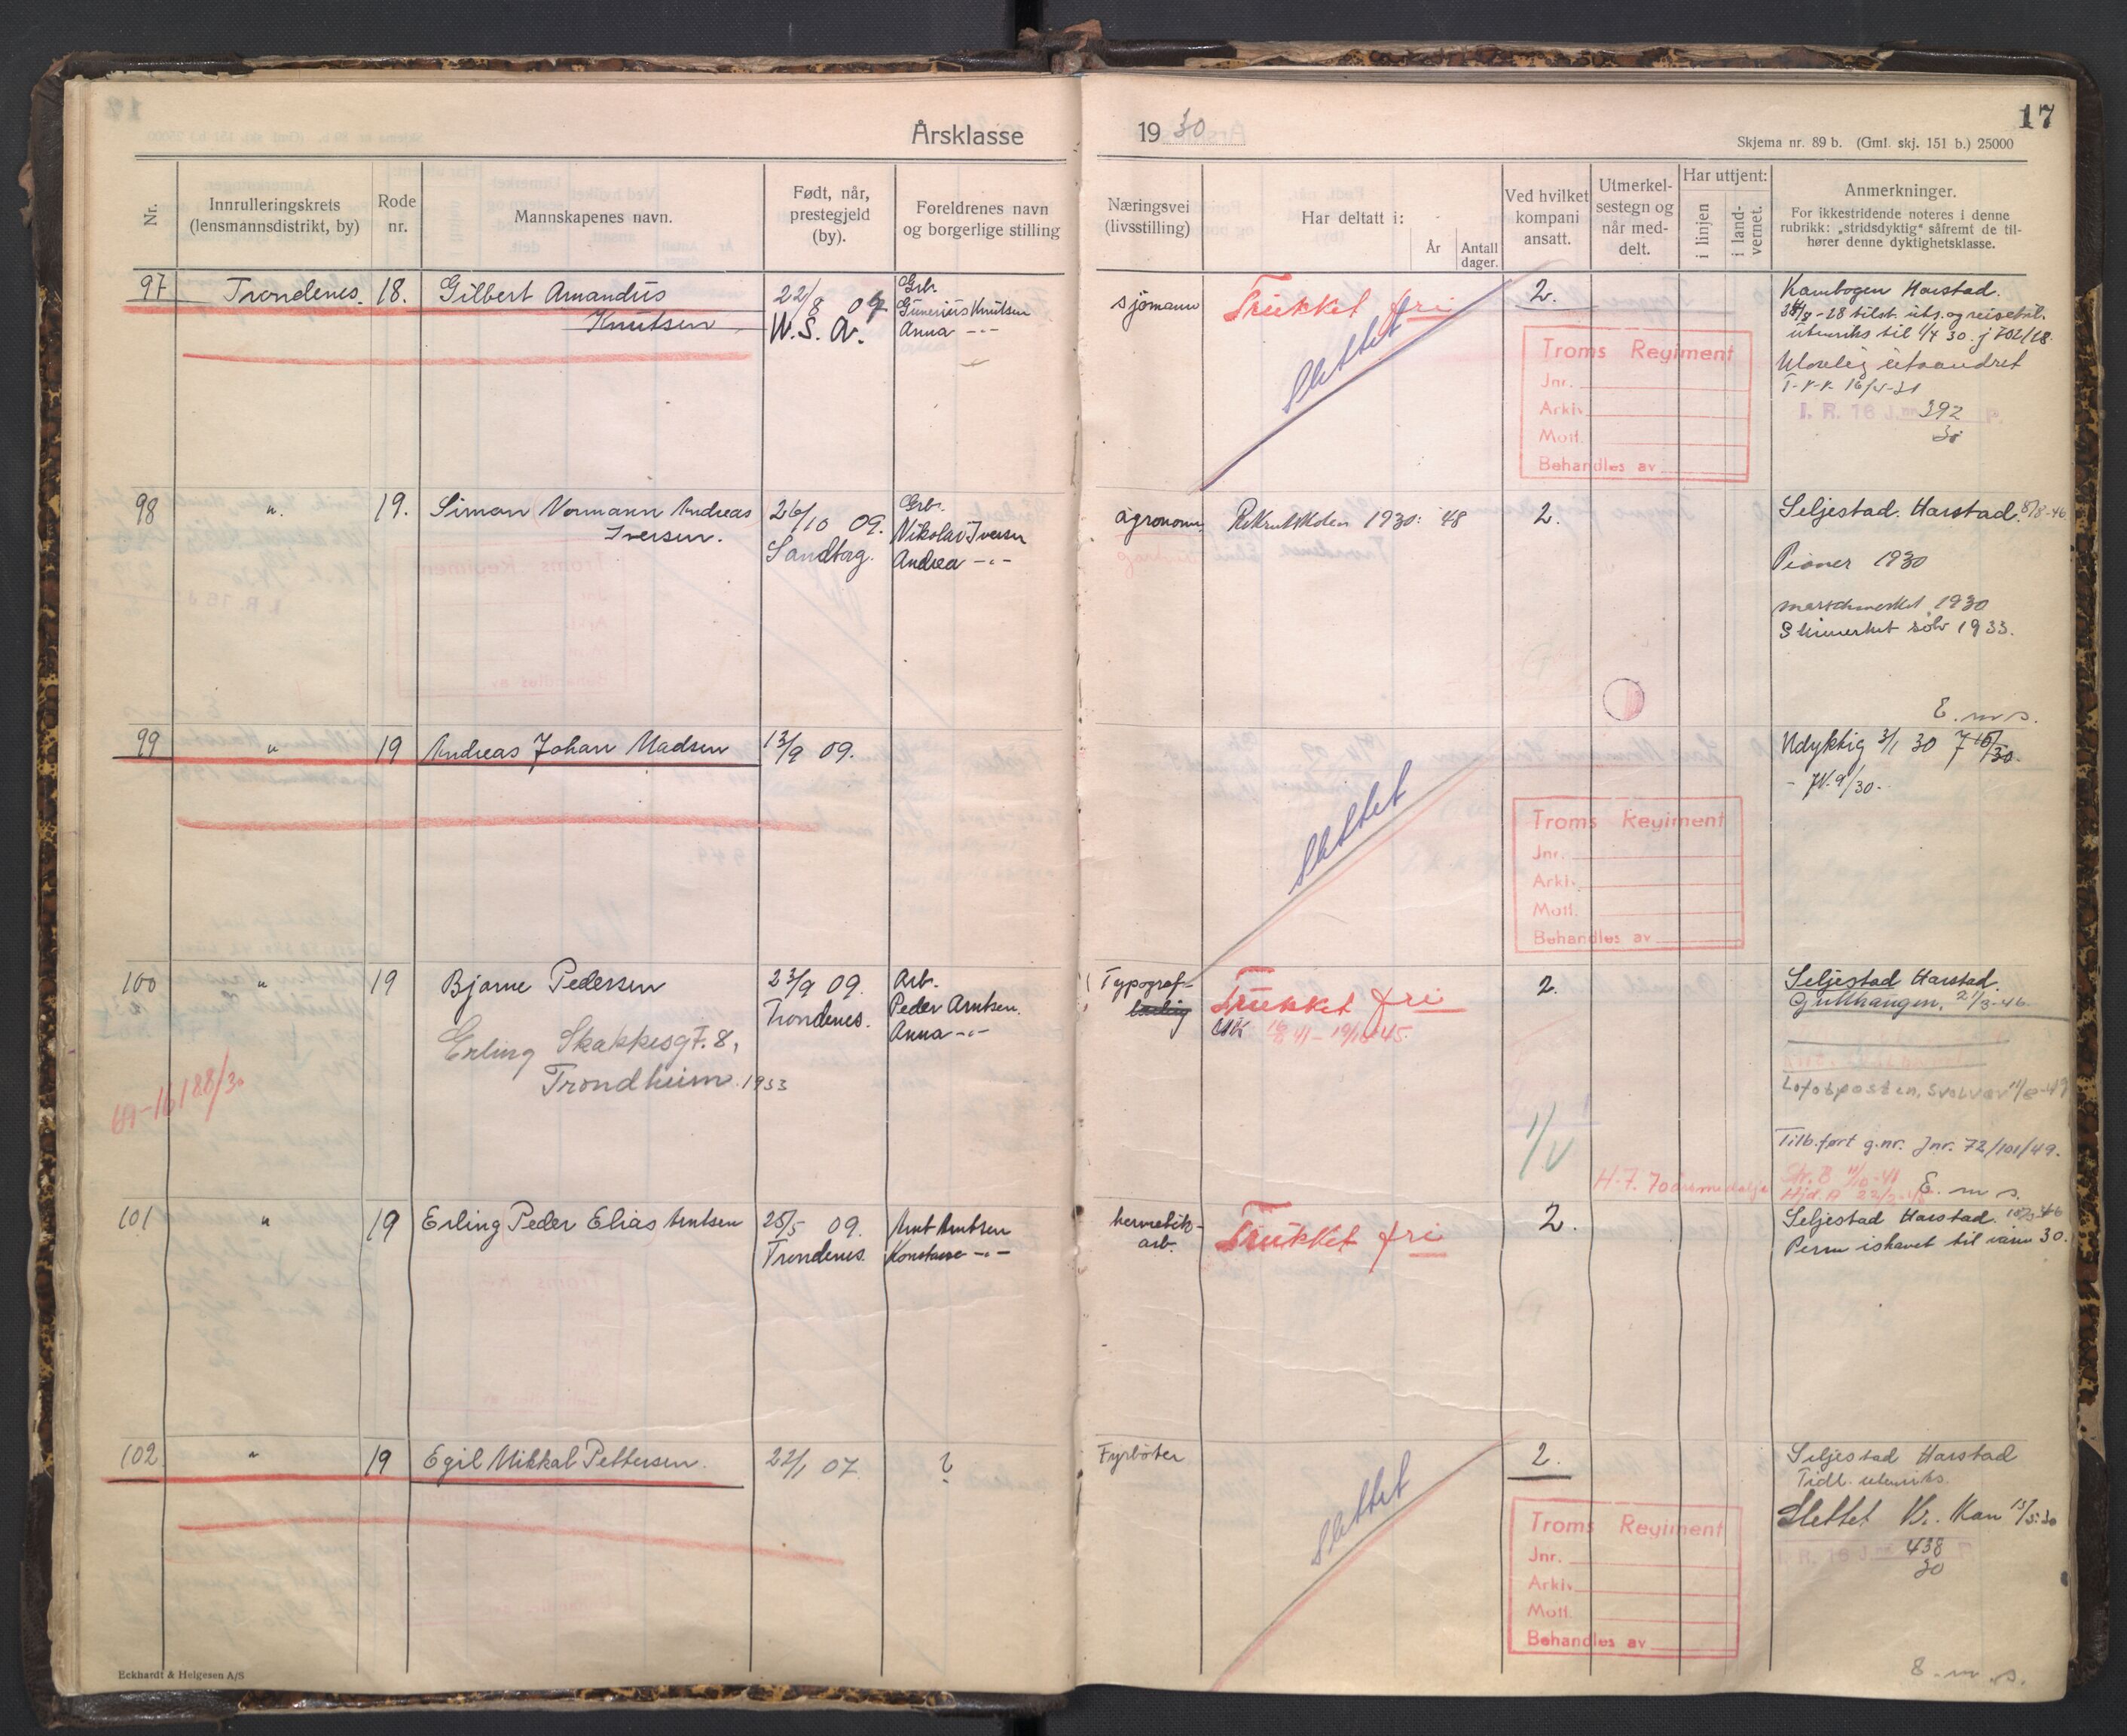 Årsklasse
19 30
17
Skjema nr. 89 b. (Gml. skj. 151 b.) 25000
Nr.
Innrulleringskrets
(lensmannsdistrikt, by)
Rode
nr.
Mannskapenes navn.
Født, når,
prestegjeld
(by).
Foreldrenes navn
og borgerlige stilling
Næringsvei
(livsstilling)
Har deltatt i:
År
Antall
dager.
Ved hvilket
kompani
ansatt.
Utmerkel-
sestegn og
når med-
delt.
Har uttjent:
i linjen
i land-
vernet.
Anmerkninger.
For ikkestridende noteres i denne
rubrikk: „stridsdyktig“ såfremt de til-
hører denne dyktighetsklasse.
97 Trondenes. 18. Gilbert Amandus
Knutsen
22/8 09
U.S.A.
Grb.
Gunerius Knutsen
Anna -"-
sjømann
Trukket fri
Slettet
2.
Troms Regiment
Jnr.
Arkiv
Mott.
Behandles av
Kanebogen Harstad.
utenriks til 1/4 30. j 702/28.
Ulovlig utvandret
I. R. 16 J.nr. 392 P.
30
98 " 19. Simon Normann Andreas
Iversen.
26/10 09.
Sandtorg.
Grb.
Nikolai Iversen
Andrea -"-
agronom
Rekrutskolen 1930: 48
2.
Seljestad. Harstad. 8/8-46
Pioner 1930
marschmerket 1930
Skimerket sølv 1933.
E. m s.
99 " 19 Andreas Johan Madsen
13/9 09.
Slettet
Troms Regiment
Jnr.
Arkiv.
Mott.
Behandles av
Udyktig 3/1 30
100 " 19 Bjarne Pedersen
Erling Skakkesgt. 8,
Trondheim. 1933
188/30
23/9 09.
Trondenes.
Arb.
Peder Arntsen.
Anna -"-
Typograf-
lærling
Trukket fri
2.
1/V
Seljestad Harstad.
21/3-46
Lofotposten, Svolvær 11/8-49
Tilb.ført g.nr. Jnr. 72/101/49.
H-7. 70 årsmedalje
E. m s.
101 " 19 Erling Peder Elias Arntsen
25/5 09.
Trondenes.
Arnt Arntsen
Konstanse -"-
hermetik-
arb.
Trukket fri
2.
Seljestad Harstad.
Perm ishavet til våren 30.
102 " 19 Egil Mikkal Pettersen.
22/1 07.
?
Fyrbøter
Slettet
2.
Troms Regiment
Jnr.
Arkiv
Mott.
Behandles av
Seljestad Harstad
Tidl. utenriks.
Slettet Kr. Kom 13/3-30
I. R. 16 J.nr. 438 P
30
E. m. s.
Eckhardt & Helgesen A/S